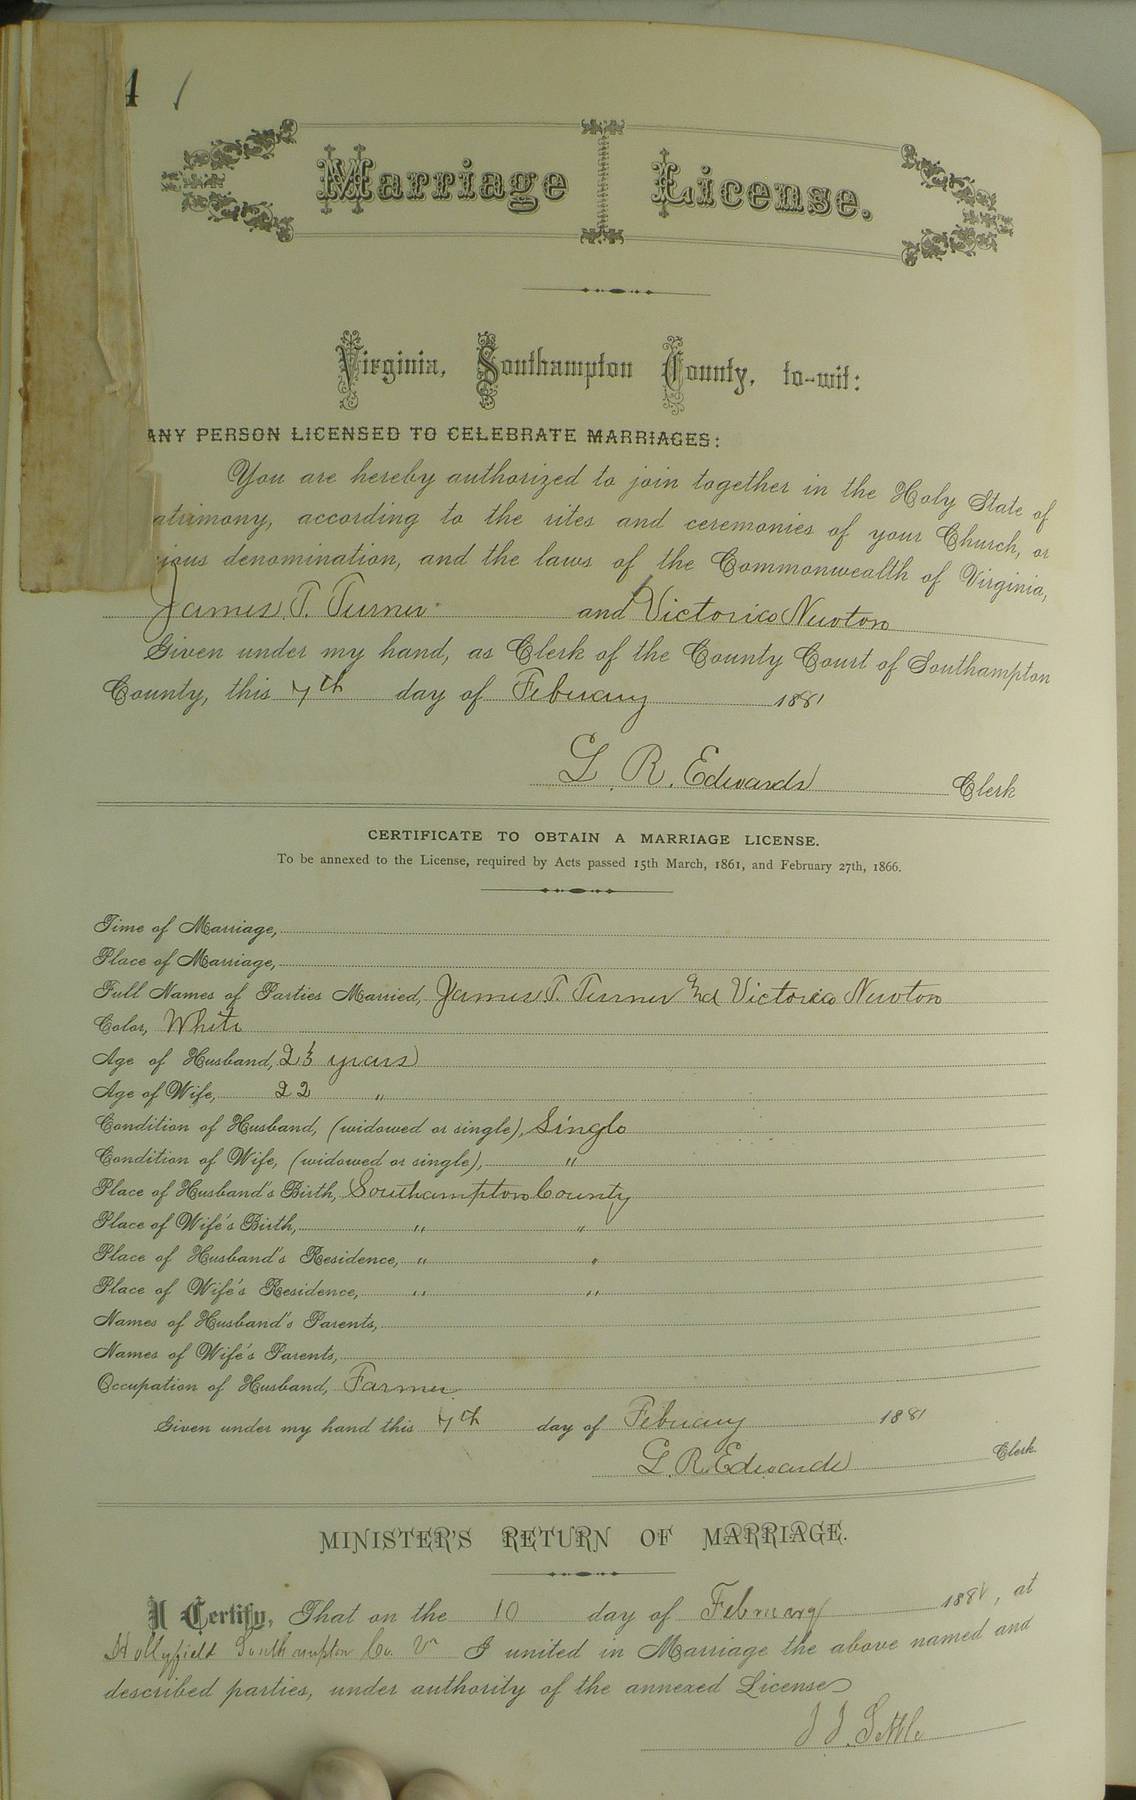 4
Marriage License.
Virginia, Southampton County, to-wit:
ANY PERSON LICENSED TO CELEBRATE MARRIAGES:
You are hereby authorized to join together in the Holy State of
atrimony, according to the rites and ceremonies of your Church, or
ious denomination, and the laws of the Commonwealth of Virginia,
James T. Turner and Victoria Newton
Given under my hand, as Clerk of the County Court of Southampton
County, this 7th day of February 1881
L. R. Edwards Clerk
CERTIFICATE TO OBTAIN A MARRIAGE LICENSE.
To be annexed to the License, required by Acts passed 15th March, 1861, and February 27th, 1866.
Time of Marriage,
Place of Marriage,
Full Names of Parties Married, James T. Turner and Victoria Newton
Color, White
Age of Husband, years
Age of Wife, 22 "
Condition of Husband, (widowed or single), Single
Condition of Wife, (widowed or single), "
Place of Husband's Birth, Southampton County
Place of Wife's Birth, " "
Place of Husband's Residence, " "
Place of Wife's Residence, " "
Names of Husband's Parents,
Names of Wife's Parents,
Occupation of Husband, Farmer
Given under my hand this 7th day of February 1881
L. R. Edwards Clerk.
MINISTER'S RETURN OF MARRIAGE.
I Certify, That on the 10 day of February 1881, at
Hollyfield Southampton Co. Va I united in Marriage the above named and
described parties, under authority of the annexed License
J J. Settle